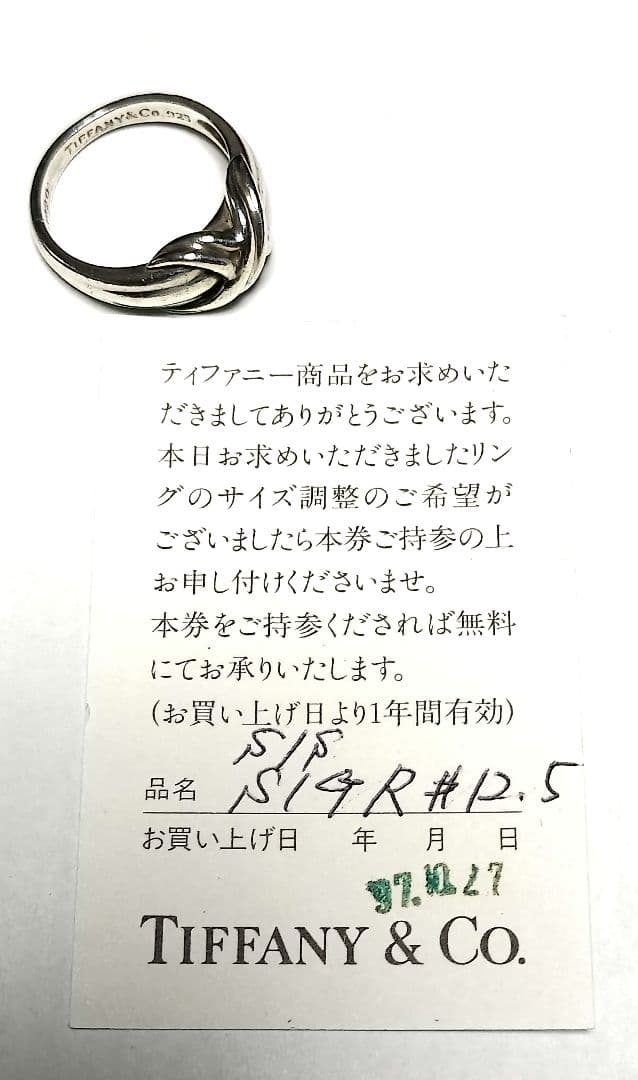 TIFFANY&Co. 925
ティファニー商品をお求めいた
だきましてありがとうございます。
本日お求めいただきましたリン
グのサイズ調整のご希望が
ございましたら本券ご持参の上
お申し付けくださいませ。
本券をご持参くだされば無料
にてお承りいたします。
(お買い上げ日より1年間有効)
品名 R #12.5
お買い上げ日 年 月 日
TIFFANY & CO.